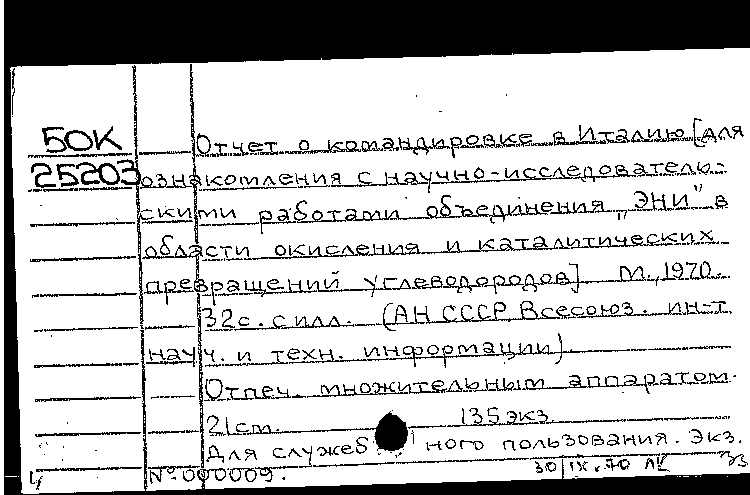 БОК Отчет о командировке в Италию [для
25203 ознакомления с научно-исследователь-
скими работами объединения „ЭНИ" в
области окисления и каталитических
превращений углеводородов]. М., 1970.
32с. с илл. (АН СССР. Всесоюз. ин-т
науч. и техн. информации)
Отпеч. множительным аппаратом.
21см. 135 экз.
Для служебного пользования. Экз.
№ 000009. 30/IX.70